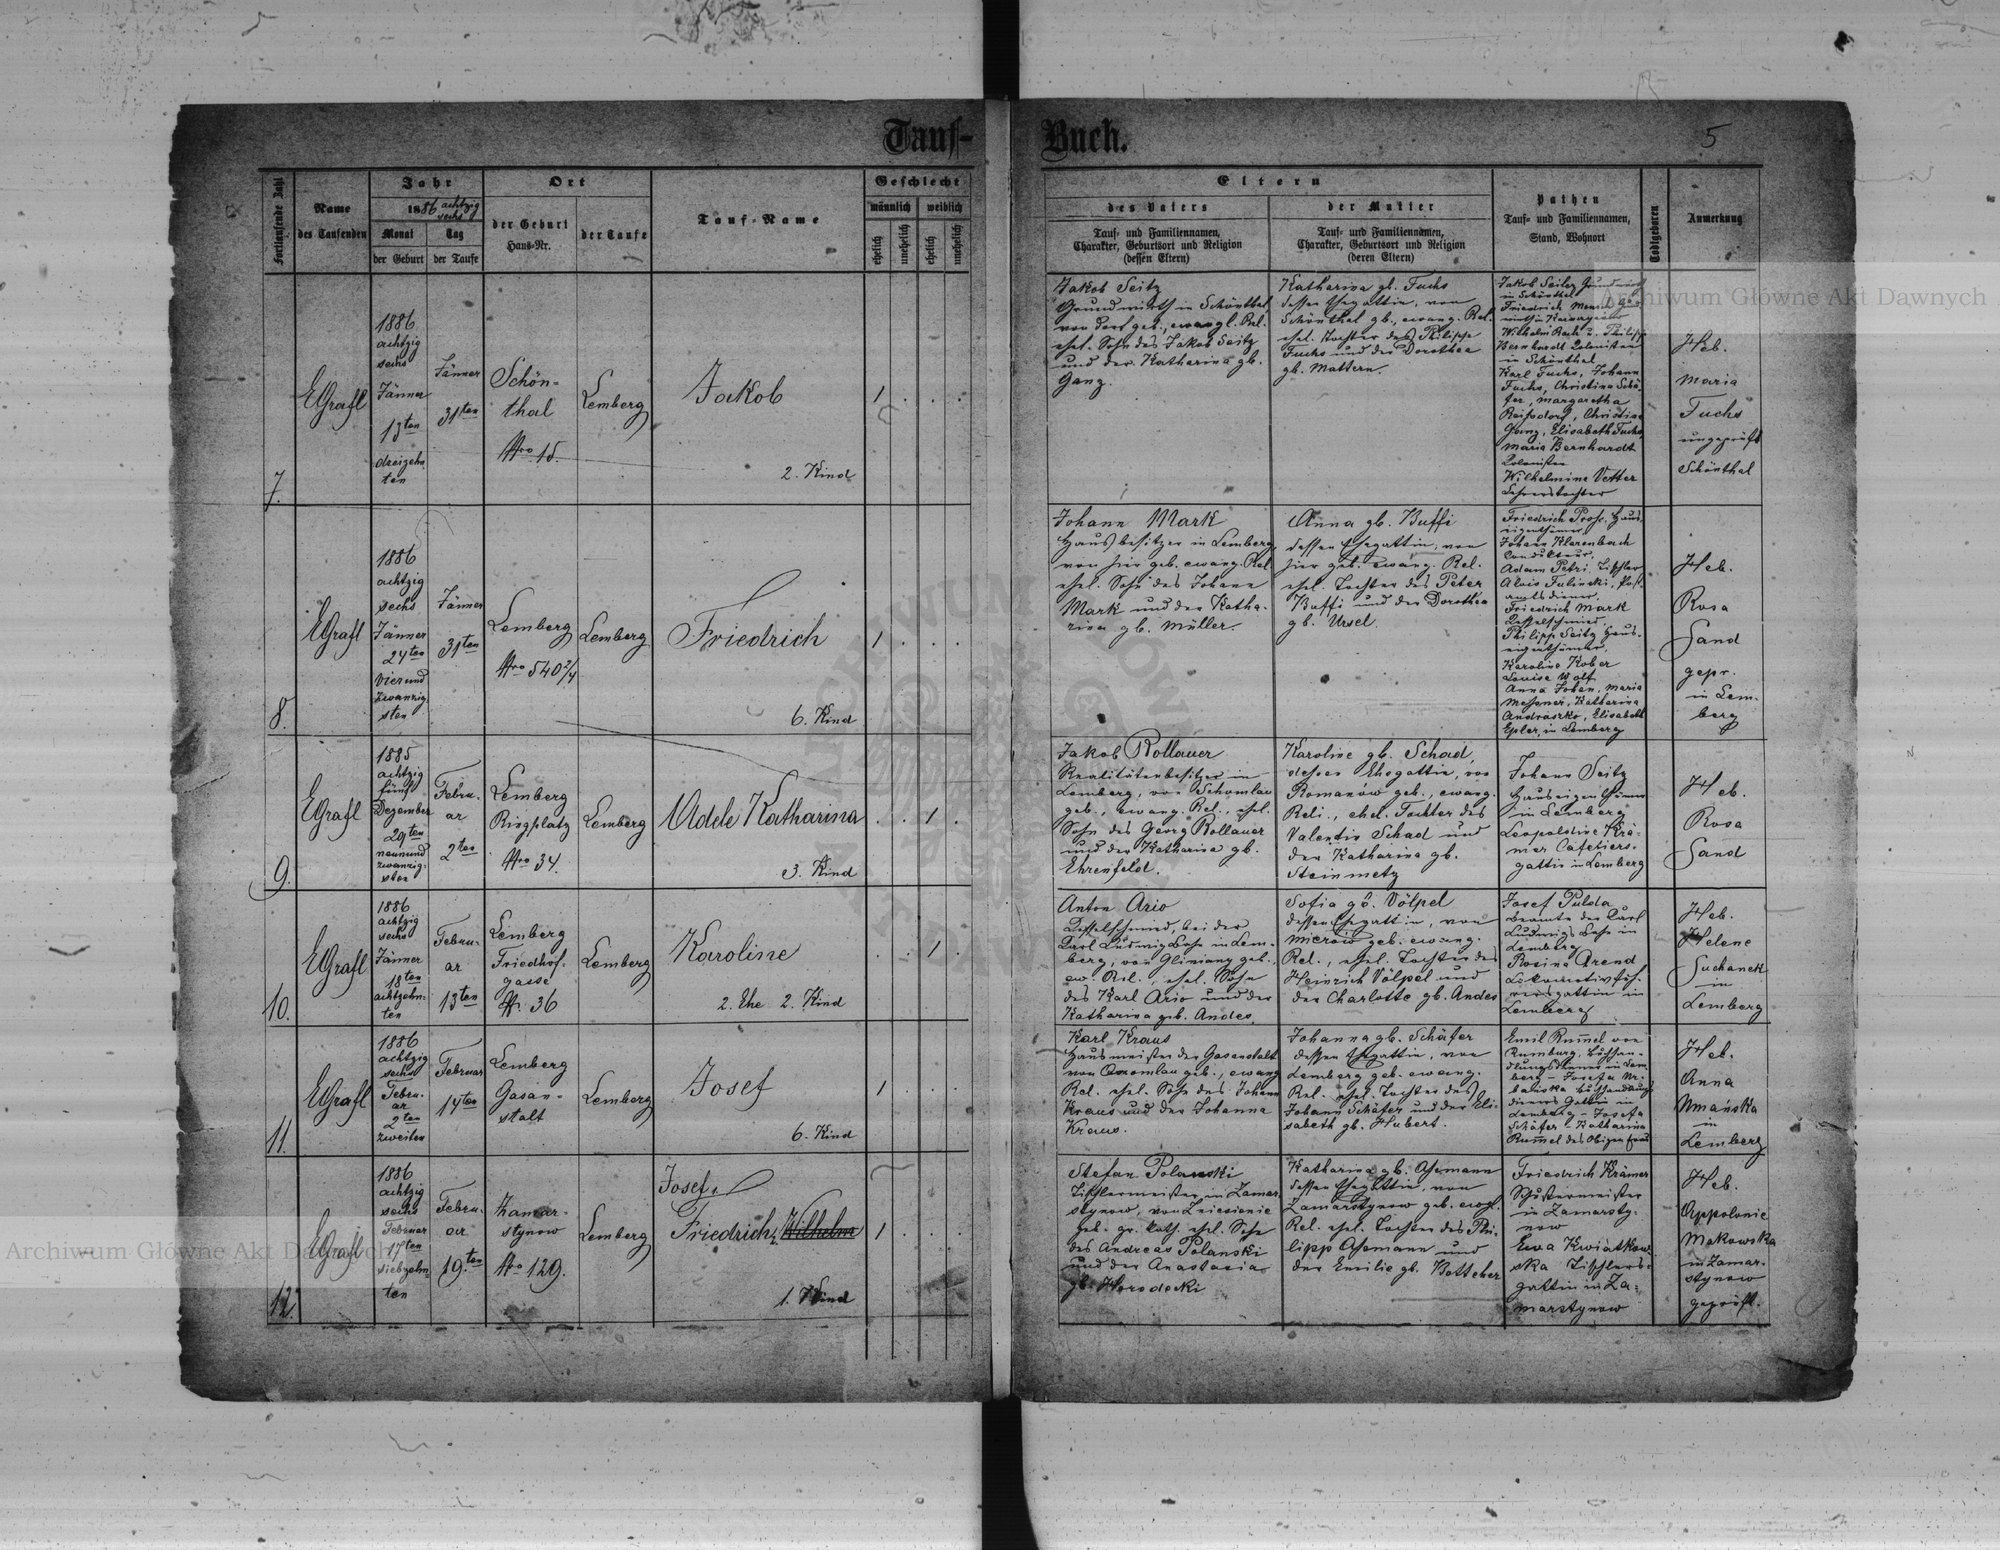 Tauf-Buch.
5
Fortlaufende Zahl
Name
des Taufenden
Jahr
1886 achtzig
sechs
Monat
der Geburt
Tag
der Taufe
Ort
der Geburt
Haus-Nr.
der Taufe
Tauf-Name
Geschlecht
männlich
weiblich
ehelich
unehelich
ehelich
unehelich
Eltern
des Vaters
Tauf- und Familiennamen,
Charakter, Geburtsort und Religion
(dessen Eltern)
der Mutter
Tauf- und Familiennamen,
Charakter, Geburtsort und Religion
(deren Eltern)
Pathen
Tauf- und Familiennamen,
Stand, Wohnort
Todtgeboren
Anmerkung
7.
EGrafl
1886
achtzig
sechs
Jänner
13ten
dreizehn-
ten
Jänner
31ten
Schön-
thal
Nro 15.
Lemberg
Jakob
2. Kind
1
Jakob Seitz
Grundwirth in Schönthal
von dort geb., evangl. Rel.
ehel. Sohn des Jakob Seitz
und der Katharina gb.
Ganz.
Katharina gb. Fuchs
dessen Ehegattin, von
Schönthal gb., evang. Rel.
ehel. Tochter des Philipp
Fuchs und der Dorothea
gb. Mattern.
Jakob Seiler Grundwirth
in Schönthal
Friedrich
Wilhelm Bach u. Philipp
Bernhardt Kolonisten
in Schönthal
Karl Fuchs, Johann
Fuchs, Christina Schä-
fer, Margaretha
Reisdorf, Christine
Ganz, Elisabeth Fuchs,
Maria Bernhardt
Kolonisten
Wilhelmina Vetter
Lehrerstochter
Heb.
Maria
Fuchs
ungeprüft
Schönthal
8.
EGrafl
1886
achtzig
sechs
Jänner
24ten
vierund
zwanzig-
sten
Jänner
31ten
Lemberg
Nro 540 2/4
Lemberg
Friedrich
6. Kind
1
Johann Mark
Hausbesitzer in Lemberg,
von hier geb. evang. Rel.
ehel. Sohn des Johann
Mark und der Katha-
rina gb. Müller.
Anna gb. Buffi
dessen Ehegattin, von
hier geb. evang. Rel.
ehel. Tochter des Peter
Buffi und der Dorothea
gb. Ursel.
Friedrich Haus-
eigenthümer
Johann Klarenbach
Condukteur,
Adam Petri, Tischler
Alois Fulinski, Post-
amtsdiener,
Friedrich Mark
Kesselschmied,
Philipp Seitz Haus-
eigenthümer,
Karoline Kober
Louise Wolf
Anna Johan, Maria
Messner, Katharina
Andraszko, Elisabeth
Epler, in Lemberg
Heb.
Rosa
Sand
gepr.
in Lem-
berg
9.
EGrafl
1885
achtzig
fünf
Dezember
29ten
neunund
zwanzig-
sten
Febru-
ar
2ten
Lemberg
Ringplatz
Nro 34.
Lemberg
Adele Katharina
3. Kind
1
Jakob Rollauer
Realitätenbesitzer in
Lemberg, von Schomlau
geb., evang. Rel., ehel.
Sohn des Georg Rollauer
und der Katharina gb.
Ehrenfeld.
Karoline gb. Schad,
dessen Ehegattin, von
Romanów geb., evang.
Reli., ehel. Tochter des
Valentin Schad und
der Katharina gb.
Steinmetz
Johann Seitz
Hauseigenthümer
in Lemberg
Leopoldine Krä-
mer Cafetiers-
gattin in Lemberg
Heb.
Rosa
Sand
10.
EGrafl
1886
achtzig
sechs
Jänner
18ten
achtzehn-
ten
Febru-
ar
13ten
Lemberg
Friedhof-
gasse
N. 36
Lemberg
Karoline
2. Ehe 2. Kind
1
Anton Ario
Kesselschmied, bei der
Karl Ludwig Bahn in Lem-
berg, von Gliniany geb.
ev. Rel., ehel. Sohn
des Karl Ario und der
Katharina geb. Andes.
Sofia gb. Völpel
dessen Ehegattin, von
Mierów geb. evang.
Rel., ehel. Tochter des
Heinrich Völpel und
der Charlotte gb. Andes
Josef Pulda
Beamte der Karl
Ludwigs Bahn in
Lemberg
Rosina Arend
Lokomotivfüh-
rersgattin in
Lemberg
Heb.
Helene
Suchanek
in
Lemberg
11.
EGrafl
1886
achtzig
sechs
Febru-
ar
2ten
zweiten
Februar
14ten
Lemberg
Gasan-
stalt
Lemberg
Josef
6. Kind
1
Karl Kraus
Hausmeister der Gasanstalt
geb., evang.
Rel. ehel. Sohn des Johann
Kraus und der Johanna
Kraus.
Johanna gb. Schäfer
dessen Ehegattin, von
Lemberg geb. evang.
Rel. ehel. Tochter des
Johann Schäfer und der Eli-
sabeth gb. Hubert.
Emil Rummel von
Rumburg, Buchhan-
dlungsdiener in Lem-
berg - Josefa
Buchhandlungs
dieners Gattin in
Lemberg - Josefa
Schäfer - Katharina
Rummel des Obigen Frau
Heb.
Anna
Umańska
in
Lemberg
12.
EGrafl
1886
achtzig
sechs
Februar
17ten
siebzehn-
ten
Febru-
ar
19.ten
Zamar-
stynow
Nro 129.
Lemberg
Josef
Friedrich, Wilhelm
1. Kind
1
Stefan Polanski
Tischlermeister, in Zamar-
stynow, von Zniesienie
geb. gr. kath. ehel. Sohn
des Andreas Polanski
und der Anastasia
gb. Horodecki
Katharina gb. Assmann
dessen Ehegattin, von
Zamarstynow geb. evgl.
Rel. ehel. Tochter des Phi-
lipp Assmann und
der Emilie gb. Bottcher
Friedrich Krämer
Schustermeister
in Zamarsty-
now
Ewa Kwiatkow-
ska Tischlers-
gattin in Za-
marstynow
Heb.
Appolonie
Makowska
in Zamar-
stynow
geprüft.
Archiwum Główne Akt Dawnych
Archiwum Główne Akt Dawnych